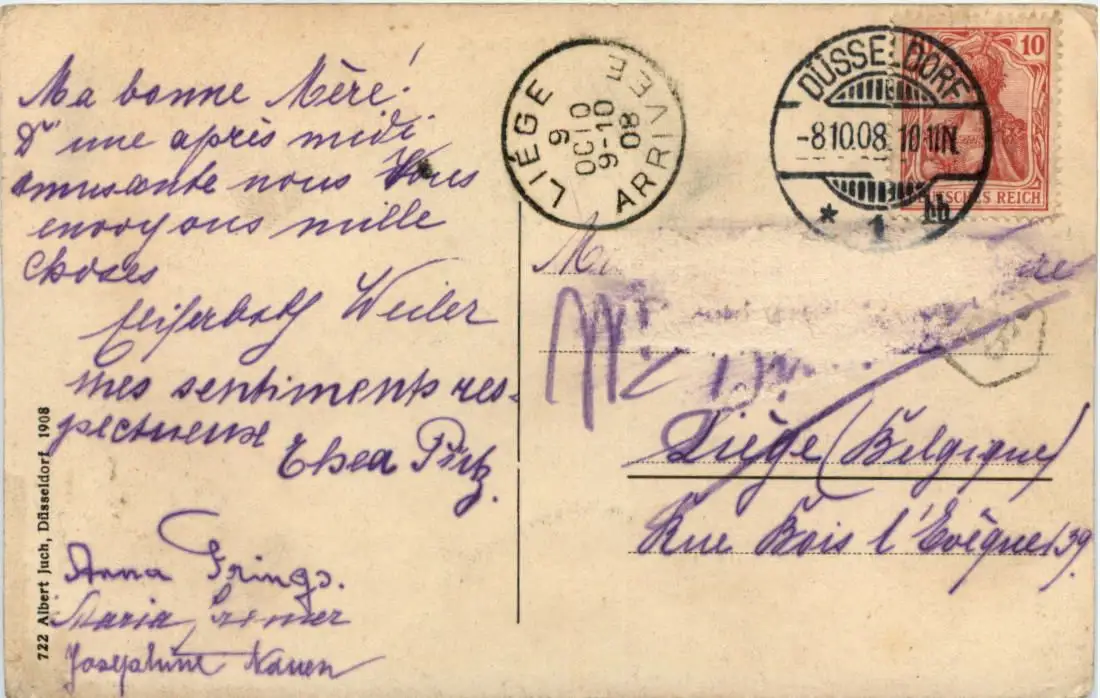 Ma bonne Mère!
D'une après midi
amusante nous Vous
envoyons mille
choses
Weiler
mes sentiments res-
pectueux
Thea Pütz.
Anna Frings.
Maria Cremer
Josephine Nauen
722 Albert Juch, Düsseldorf 1908
LIÉGE
9
OCTO
9-10
08
ARRIVEE
DÜSSELDORF
-8.10.08. 10-11N.
* 1 bb
10
DEUTSCHES REICH
Liège (Belgique)
Rue Bois l'Evêque 139.